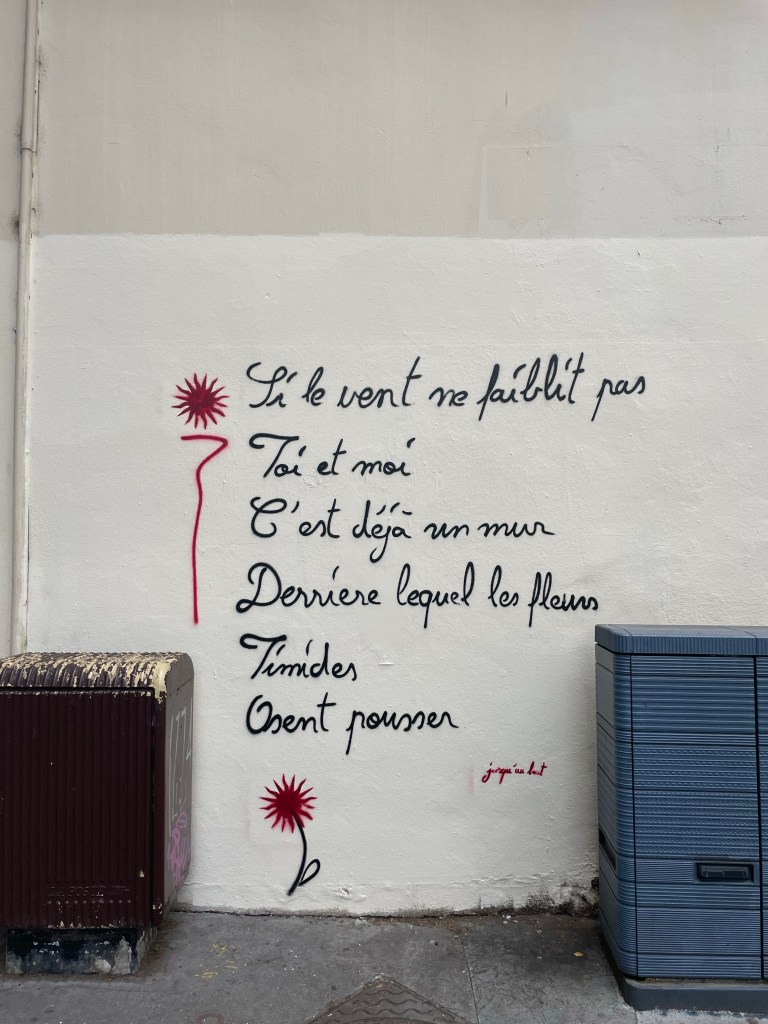 Si le vent ne faiblit pas
Toi et moi
C'est déjà un mur
Derriere lequel les fleurs
Timides
Osent pousser
jusqu'au bout